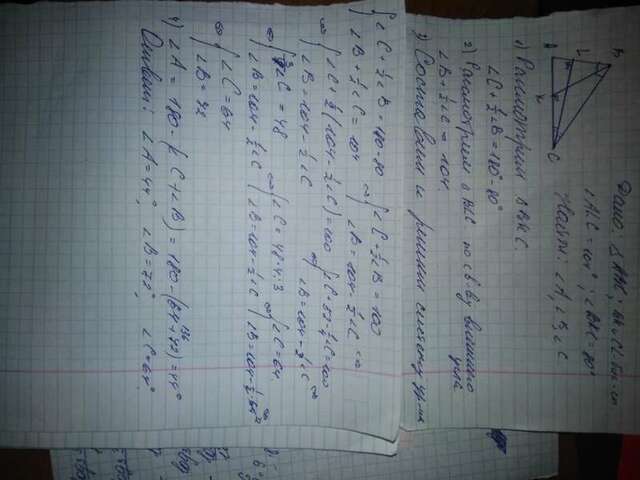 Дано: △ABC; BK и CL бис-сы
∠ALC = 104°; ∠BKC = 80°
Найти: ∠A, ∠B, ∠C
B
L
A
K
C
1) Рассмотрим △BKC.
∠C + ½∠B = 180° - 80°
2) Рассмотрим △BLC по св-ву внешнего угла
∠B + ½∠C = 104
3) Составим и решим систему ур-ия
{ ∠C + ½∠B = 180 - 80
∠B + ½∠C = 104
⇔ { ∠C + ½∠B = 100
∠B = 104 - ½∠C ⇔
⇔ { ∠C + ½(104 - ½∠C) = 100
∠B = 104 - ½∠C
⇔ { ∠C + 52 - ¼∠C = 100
∠B = 104 - ½∠C ⇔
⇔ { ¾∠C = 48
∠B = 104 - ½∠C
⇔ { ∠C = 48·4:3
∠B = 104 - ½∠C
⇔ { ∠C = 64
∠B = 104 - ½·64 ⇔
⇔ { ∠C = 64
∠B = 72
4) ∠A = 180 - (∠C + ∠B) = 180 - (64 + 72) = 44°
136
Ответ: ∠A = 44°, ∠B = 72°, ∠C = 64°.